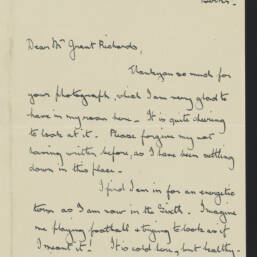 Dear Mr Grant Richards,
Thank you so much for
your photograph, which I am very glad to
have in my room here. It is quite cheering
to look at it. Please forgive my not
having written before, as I have been settling
down in this place.
I find I am in for an energetic
term as I am now in the Sixth. Imagine
me playing football & trying to look as if
I meant it! It is cold here, but healthy.